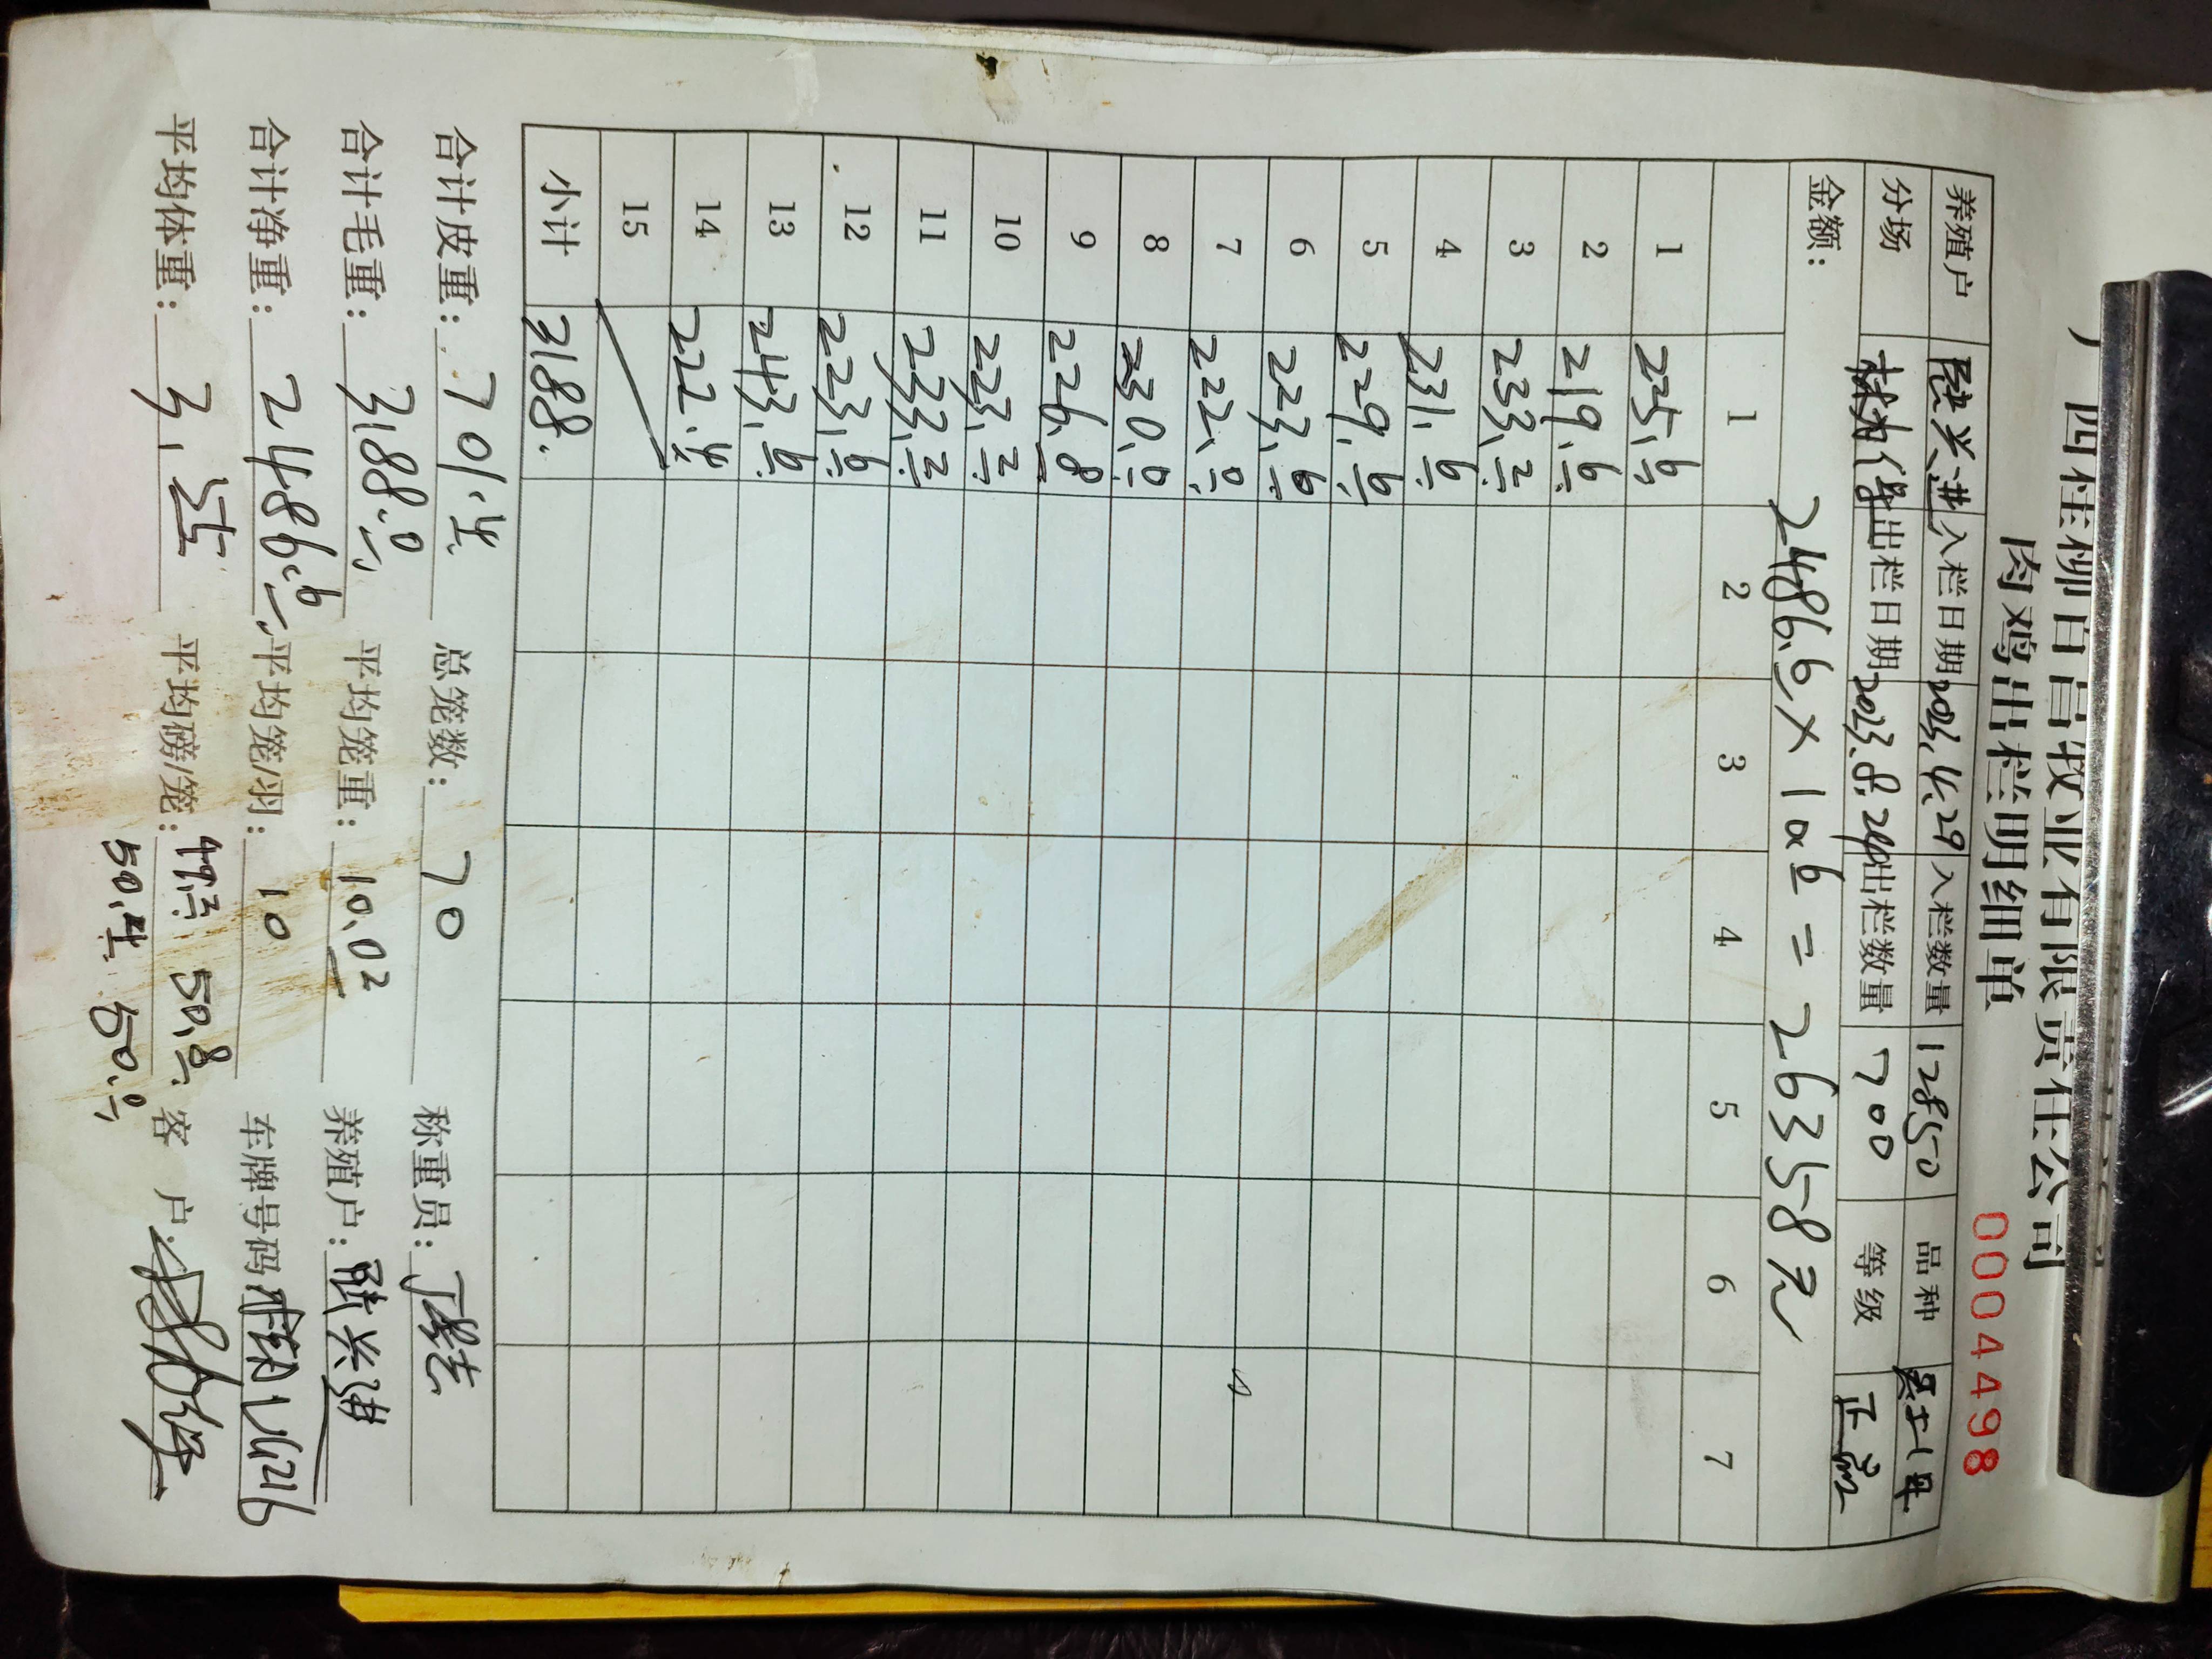 广西桂柳百言牧业有限责任公司
肉鸡出栏明细单 0004498
养殖户 陆兴进 入栏日期 2023.4.29 入栏数量 12850 品种
分场 出栏日期 2023.8.24 出栏数量 700 等级 正品
金额: 2486.6 × 10.6 = 26358元
1 2 3 4 5 6 7
1 225.6
2 219.6
3 233.2
4 231.6
5 229.6
6 223.6
7 222.0
8 230.0
9 226.8
10 223.2
11 233.2
12 223.6
13 243.6
14 222.4
15
小计 3188.
合计皮重: 701.4 总笼数: 70 称重员:
合计毛重: 3188.0 平均笼重: 10.02 养殖户: 陆兴进
合计净重: 2486.6 平均笼/羽: 10 车牌号码:
平均体重: 3.55 平均磅/笼: 50.8 客 户:
50.4 50.0